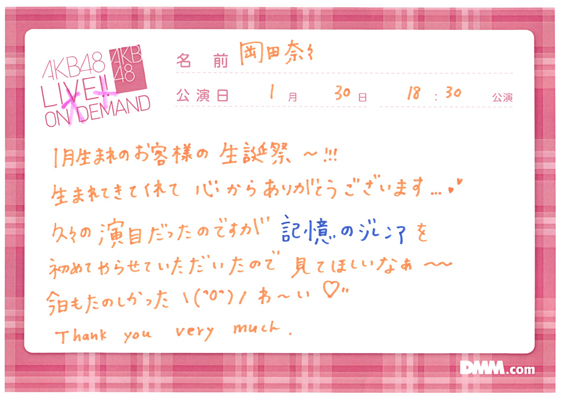 AKB48
LIVE!!
ON DEMAND
AKB
48
名前 岡田奈々
公演日 1月 30日 18:30 公演
1月生まれのお客様の 生誕祭 〜!!!
生まれてきてくれて 心からありがとうございます...♥♥
久々の演目だったのですが 記憶のジレンマを
初めてやらせていただいたので 見てほしいなぁ〜〜
今日もたのしかった ヽ(^o^)ノ わ〜い♡"
Thank you very much.
DMM.com